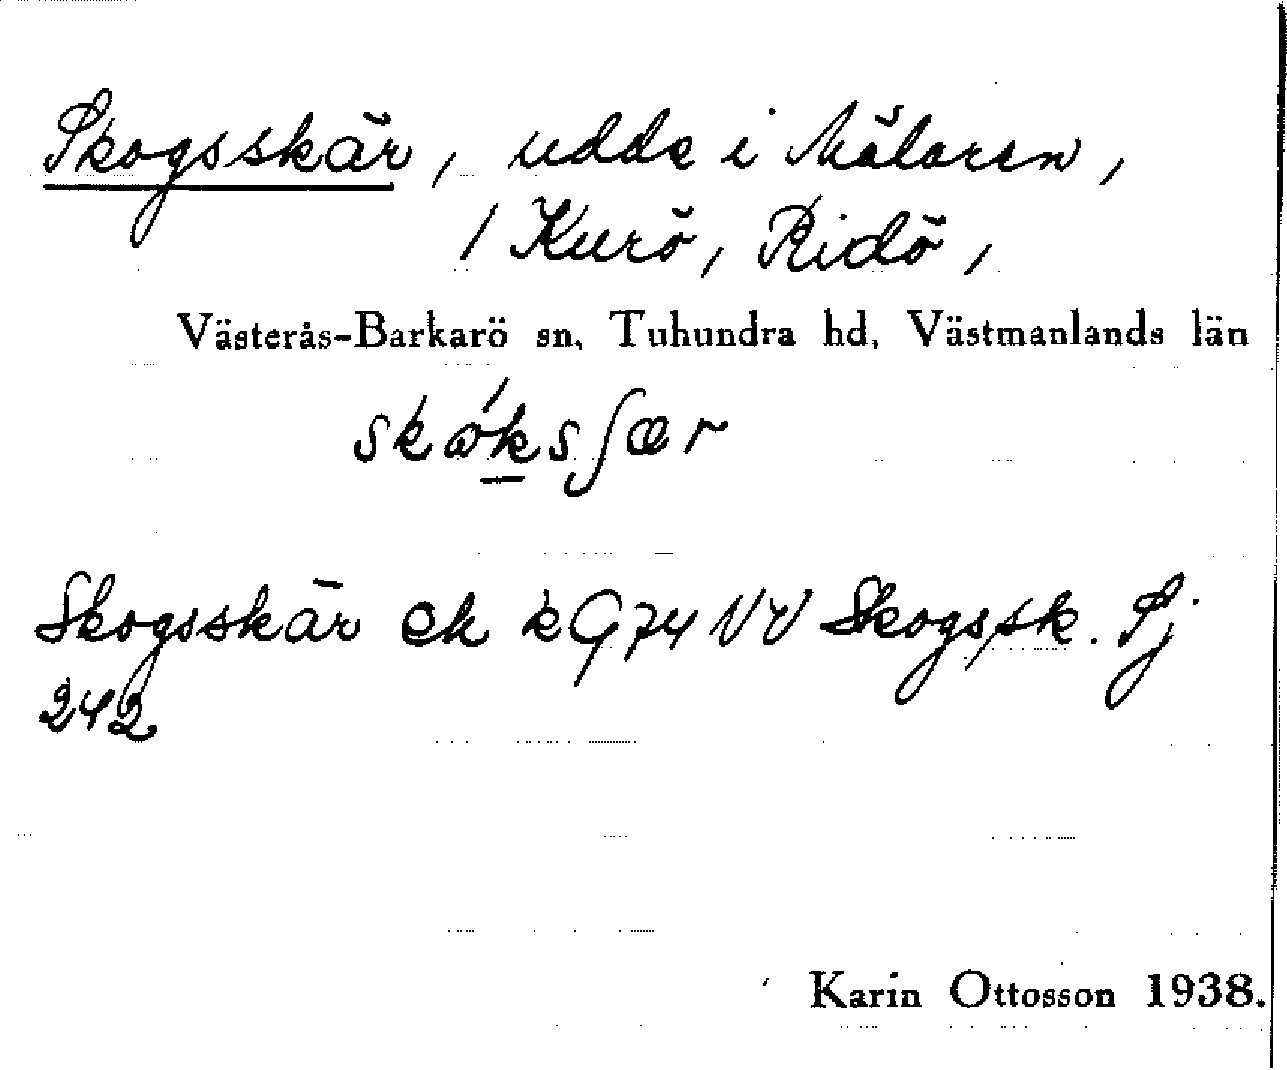 Skogsskär, udde i Mälaren,
/ Kurö, Ridö,
Västerås-Barkarö sn, Tuhundra hd, Västmanlands län
skǿksʃær
Skogsskär ek kG74 NV Skogssk. Sj
242
Karin Ottosson 1938.